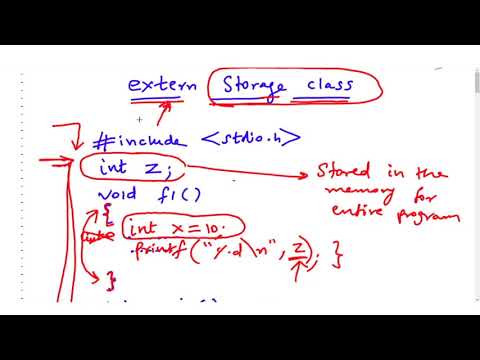 extern Storage class
#include <stdio.h>
int z;
Stored in the
memory for
entire program
void f1()
{
int x=10;
printf("%d\n", z); }
}